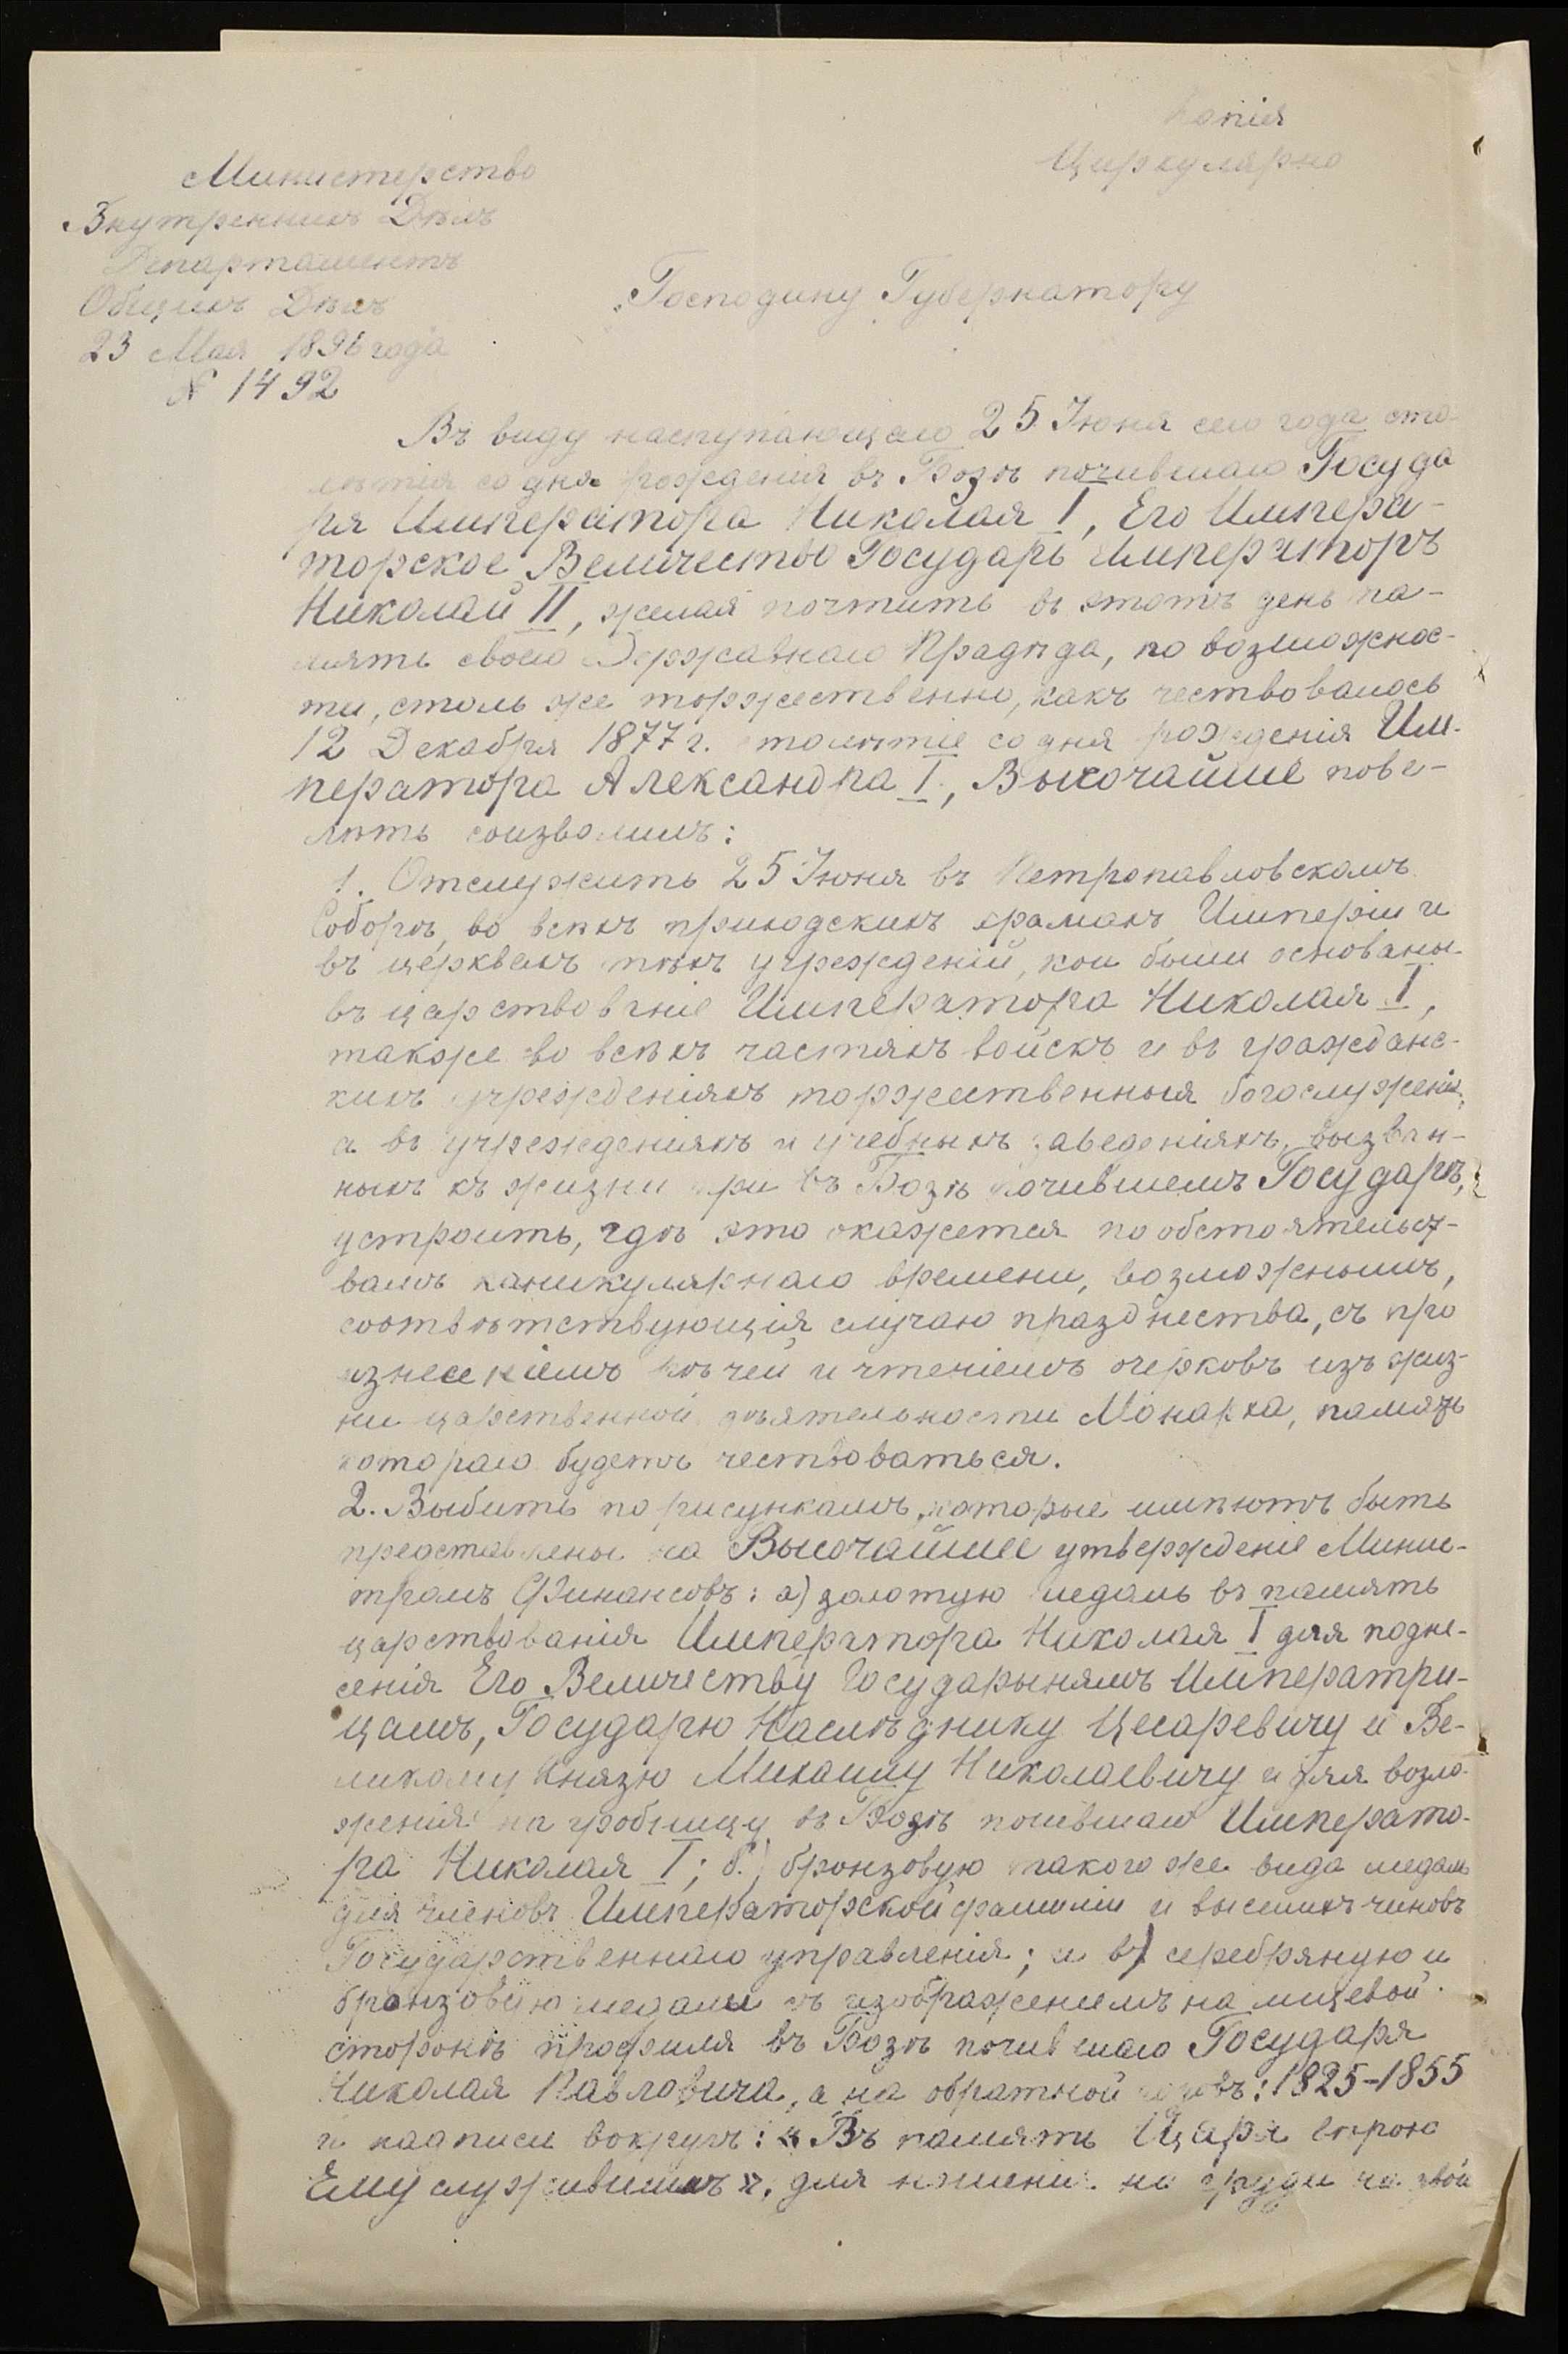 Копія
Циркулярно
Министерство
Внутреннихъ Дѣлъ
Департаментъ
Общихъ Дѣлъ
23 Мая 1896 года
№ 1492
Господину Губернатору
Въ виду наступающаго 25 Іюня сего года сто-
лѣтія со дня рожденія въ Бозѣ почившаго Госуда
ря Императора Николая I, Его Импера-
торское Величество Государь Императоръ
Николай II, желая почтить въ этотъ день па-
мять своего Державнаго Прадѣда, по возможнос-
ти, столь же торжественно, какъ чествовалось
12 Декабря 1877 г. столѣтіе со дня рожденія Им-
ператора Александра I, Высочайше пове-
лѣть соизволилъ:
1. Отслужить 25 Іюня въ Петропавловскомъ
Соборѣ, во всѣхъ приходскихъ храмахъ Имперіи и
въ церквахъ тѣхъ учрежденій, кои были основаны
въ царствованіе Императора Николая I,
также во всѣхъ частяхъ войскъ и въ гражданс-
кихъ учрежденіяхъ торжественныя богослуженія,
а въ учрежденіяхъ и учебныхъ заведеніяхъ, вызван-
ныхъ къ жизни при въ Бозѣ почившемъ Государѣ,
устроить, гдѣ это окажется по обстоятельст-
вамъ каникулярнаго времени, возможнымъ,
соотвѣтствующія случаю празднества, съ про
изнесеніемъ рѣчей и чтеніемъ очерковъ изъ жиз-
ни царственной дѣятельности Монарха, память
котораго будетъ чествоваться.
2. Выбить по рисункамъ, которые имѣютъ быть
представлены на Высочайшее утвержденіе Минис-
тромъ Финансовъ: а) золотую медаль въ память
царствованія Императора Николая I для подне-
сенія Его Величеству Государынямъ Императри-
цамъ, Государю Наслѣднику Цесаревичу и Ве-
ликому Князю Михаилу Николаевичу и для возло-
женія на гробницу въ Бозѣ почившаго Императо-
ра Николая I; б) бронзовую такого же вида медаль
для членовъ Императорской фамиліи и высшихъ чиновъ
Государственнаго управленія; и в) серебряную и
бронзовую медали съ изображеніемъ на лицевой
сторонѣ профиля въ Бозѣ почившаго Государя
Николая Павловича, а на обратной годовъ: 1825-1855
и надписи вокругъ: „Въ память Царя вѣрою
Ему служившихъ", для ношенія на груди на двой